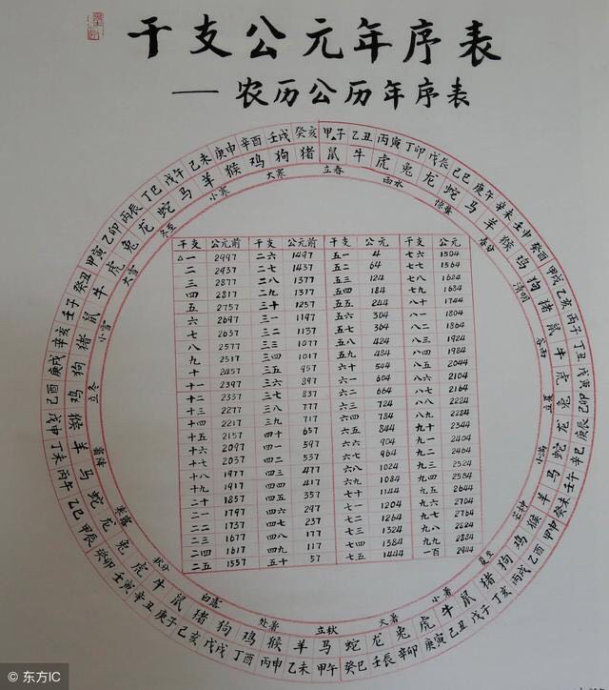 干支公元年序表
—农历公历年序表
甲子 乙丑 丙寅 丁卯 戊辰 己巳 庚午 辛未 壬申 癸酉 甲戌 乙亥 丙子 丁丑 戊寅 己卯 庚辰 辛巳 壬午 癸未 甲申 乙酉 丙戌 丁亥 戊子 己丑 庚寅 辛卯 壬辰 癸巳 甲午 乙未 丙申 丁酉 戊戌 己亥 庚子 辛丑 壬寅 癸卯 甲辰 乙巳 丙午 丁未 戊申 己酉 庚戌 辛亥 壬子 癸丑 甲寅 乙卯 丙辰 丁巳 戊午 己未 庚申 辛酉 壬戌 癸亥
鼠 牛 虎 兔 龙 蛇 马 羊 猴 鸡 狗 猪 鼠 牛 虎 兔 龙 蛇 马 羊 猴 鸡 狗 猪 鼠 牛 虎 兔 龙 蛇 马 羊 猴 鸡 狗 猪 鼠 牛 虎 兔 龙 蛇 马 羊 猴 鸡 狗 猪 鼠 牛 虎 兔 龙 蛇 马 羊 猴 鸡 狗 猪
立春 雨水 惊蛰 春分 清明 谷雨 立夏 小满 芒种 夏至 小暑 大暑 立秋 处暑 白露 秋分 寒露 霜降 立冬 小雪 大雪 冬至 小寒 大寒
干支 公元前 二六 公元前 干支 公元 干支 公元
△一 2997 二六 1497 五一 4 七六 1504
二 2937 二七 1437 五二 64 七七 1564
三 2877 二八 1377 五三 124 七八 1624
四 2817 二九 1317 五四 184 七九 1684
五 2757 三十 1257 五五 244 八十 1744
六 2697 三一 1197 五六 304 八一 1804
七 2637 三二 1137 五七 364 八二 1864
八 2577 三三 1077 五八 424 八三 1924
九 2517 三四 1017 五九 484 八四 1984
十 2457 三五 957 六十 544 八五 2044
十一 2397 三六 897 六一 604 八六 2104
十二 2337 三七 837 六二 664 八七 2164
十三 2277 三八 777 六三 724 八八 2224
十四 2217 三九 717 六四 784 八九 2284
十五 2157 四十 657 六五 844 九十 2344
十六 2097 四一 597 六六 904 九一 2404
十七 2037 四二 537 六七 964 九二 2464
十八 1977 四三 477 六八 1024 九三 2524
十九 1917 四四 417 六九 1084 九四 2584
二十 1857 四五 357 七十 1144 九五 2644
二一 1797 四六 297 七一 1204 九六 2704
二二 1737 四七 237 七二 1264 九七 2764
二三 1677 四八 177 七三 1324 九八 2824
二四 1617 四九 117 七四 1384 九九 2884
二五 1557 五十 57 七五 1444 一百 2944
© 东方IC